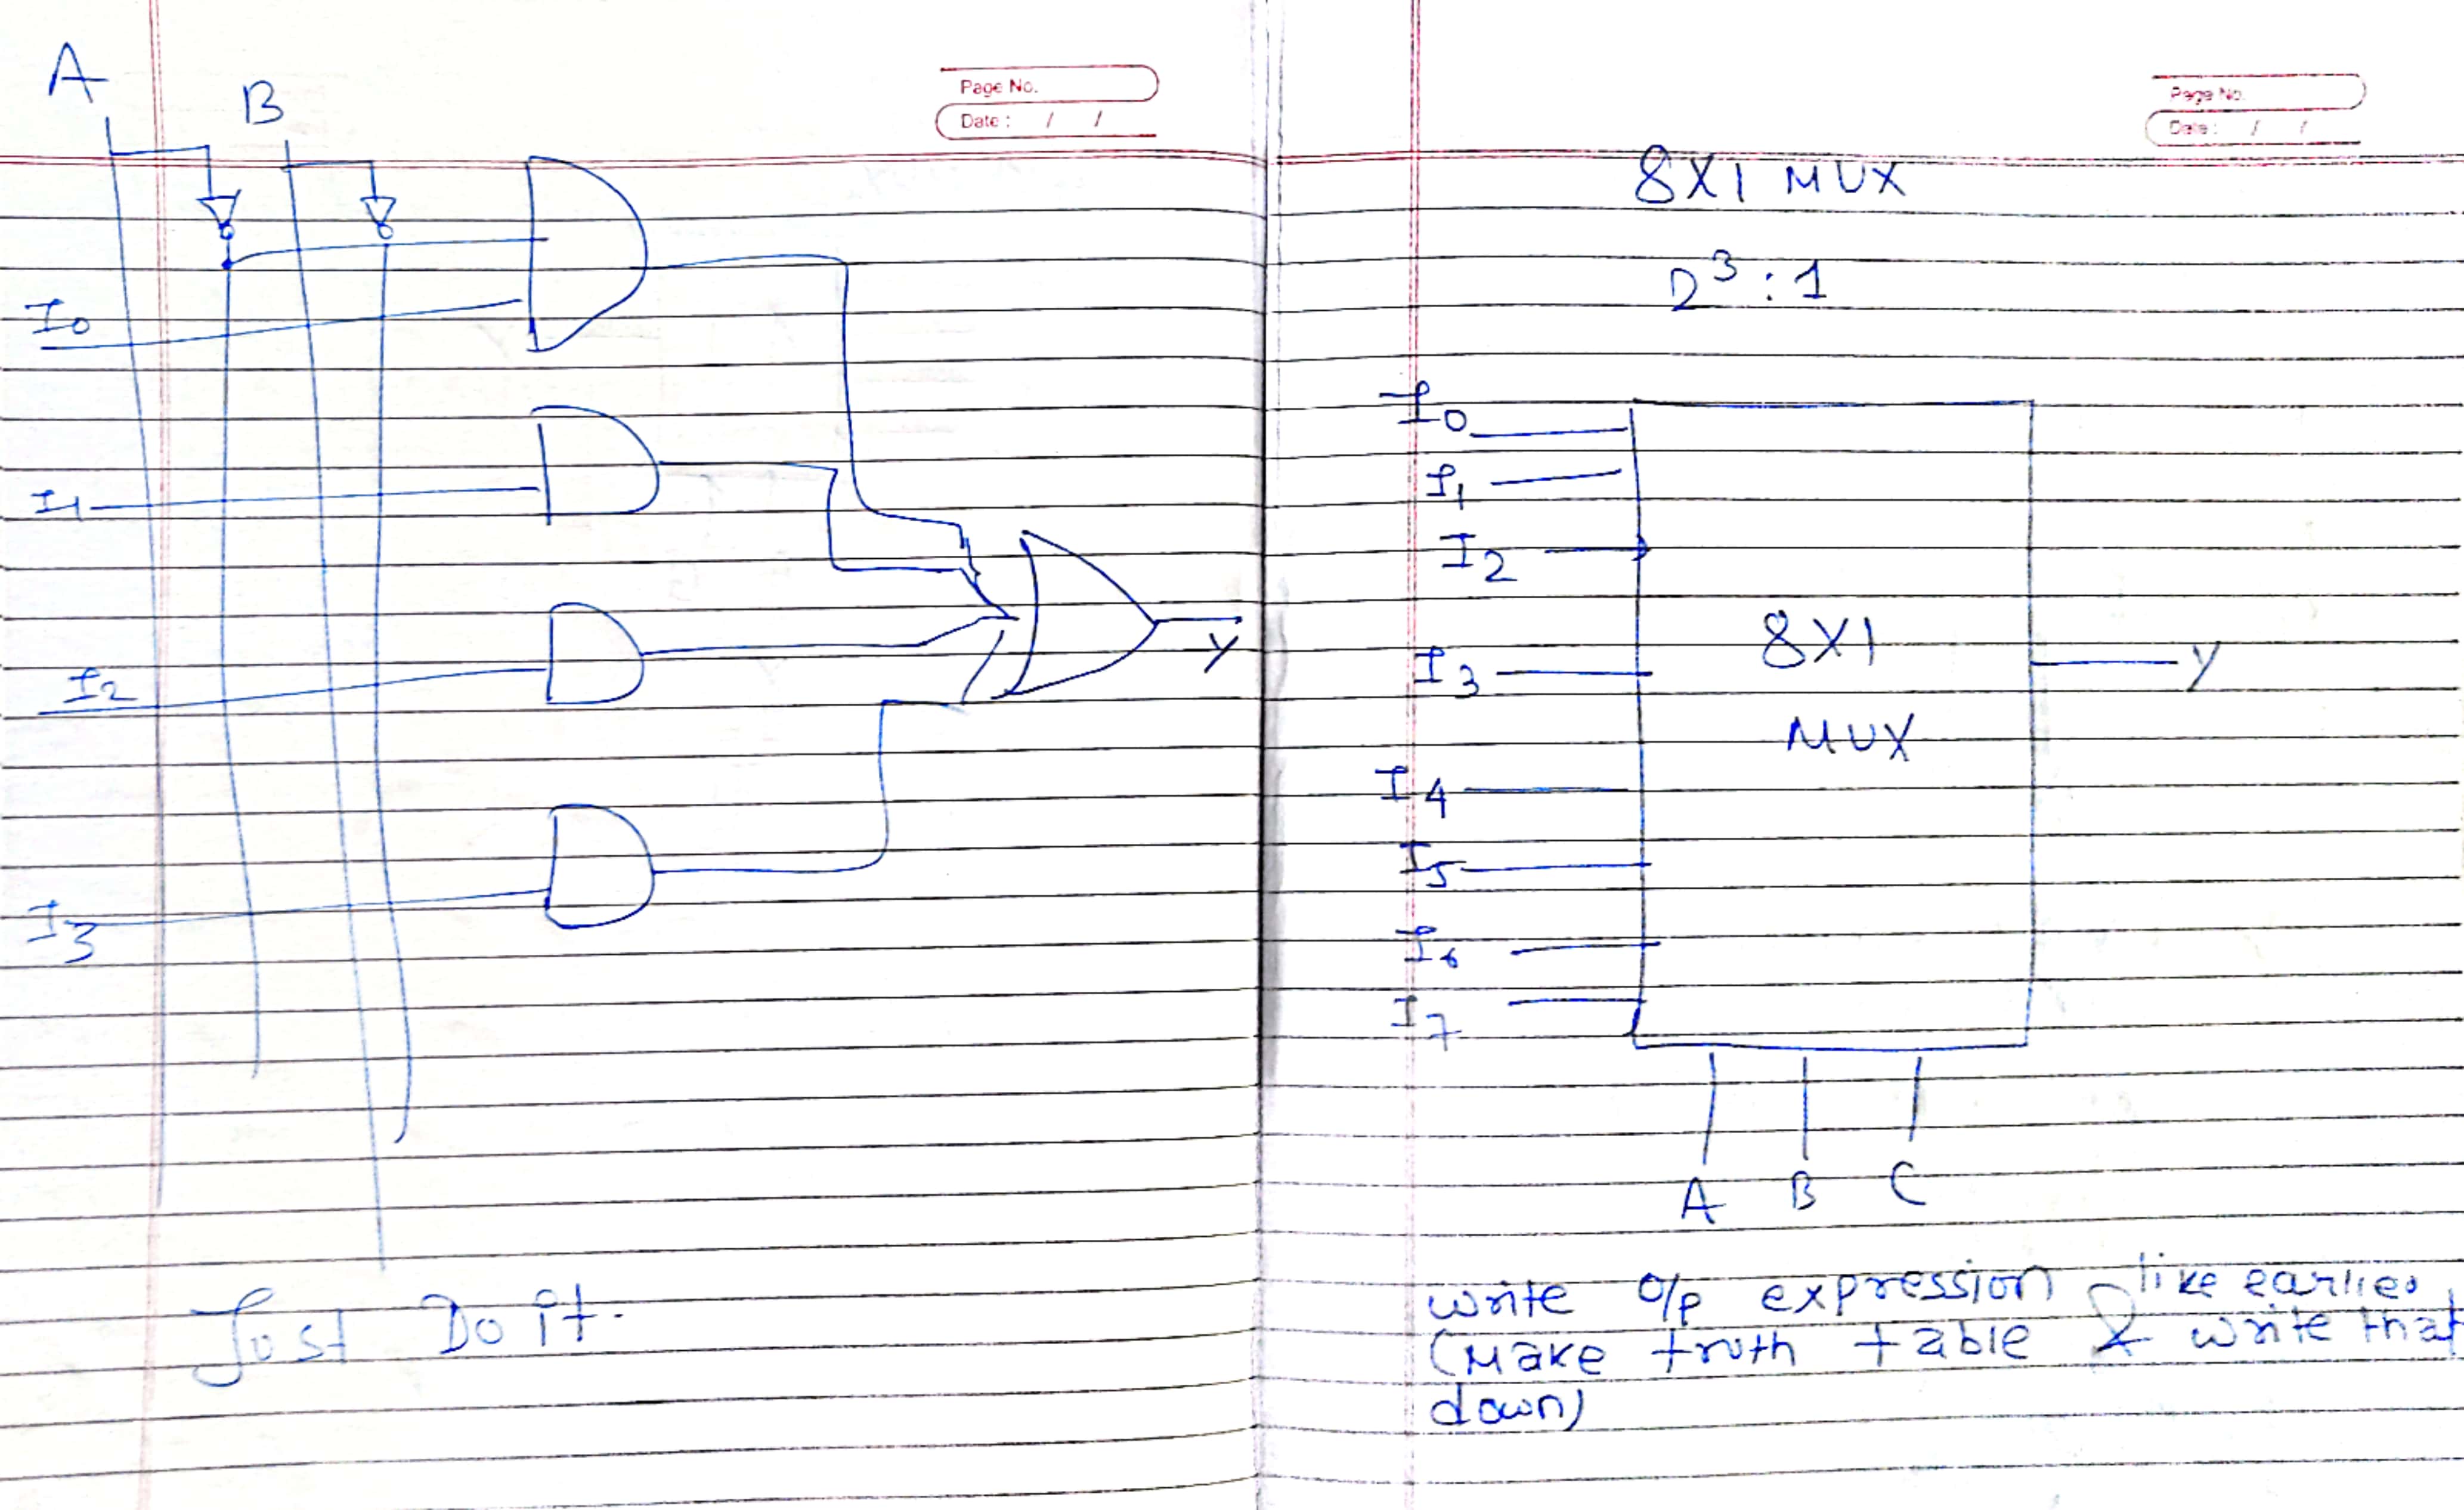 A
B
Page No.
Date : / /
I0
I1
I2
I3
Y
Just Do it.
Page No.
Date : / /
8X1 MUX
2³ : 1
I0
I1
I2
I3
I4
I5
I6
I7
8X1
MUX
Y
A B C
write o/p expression like earlier
(Make truth table & write that
down)